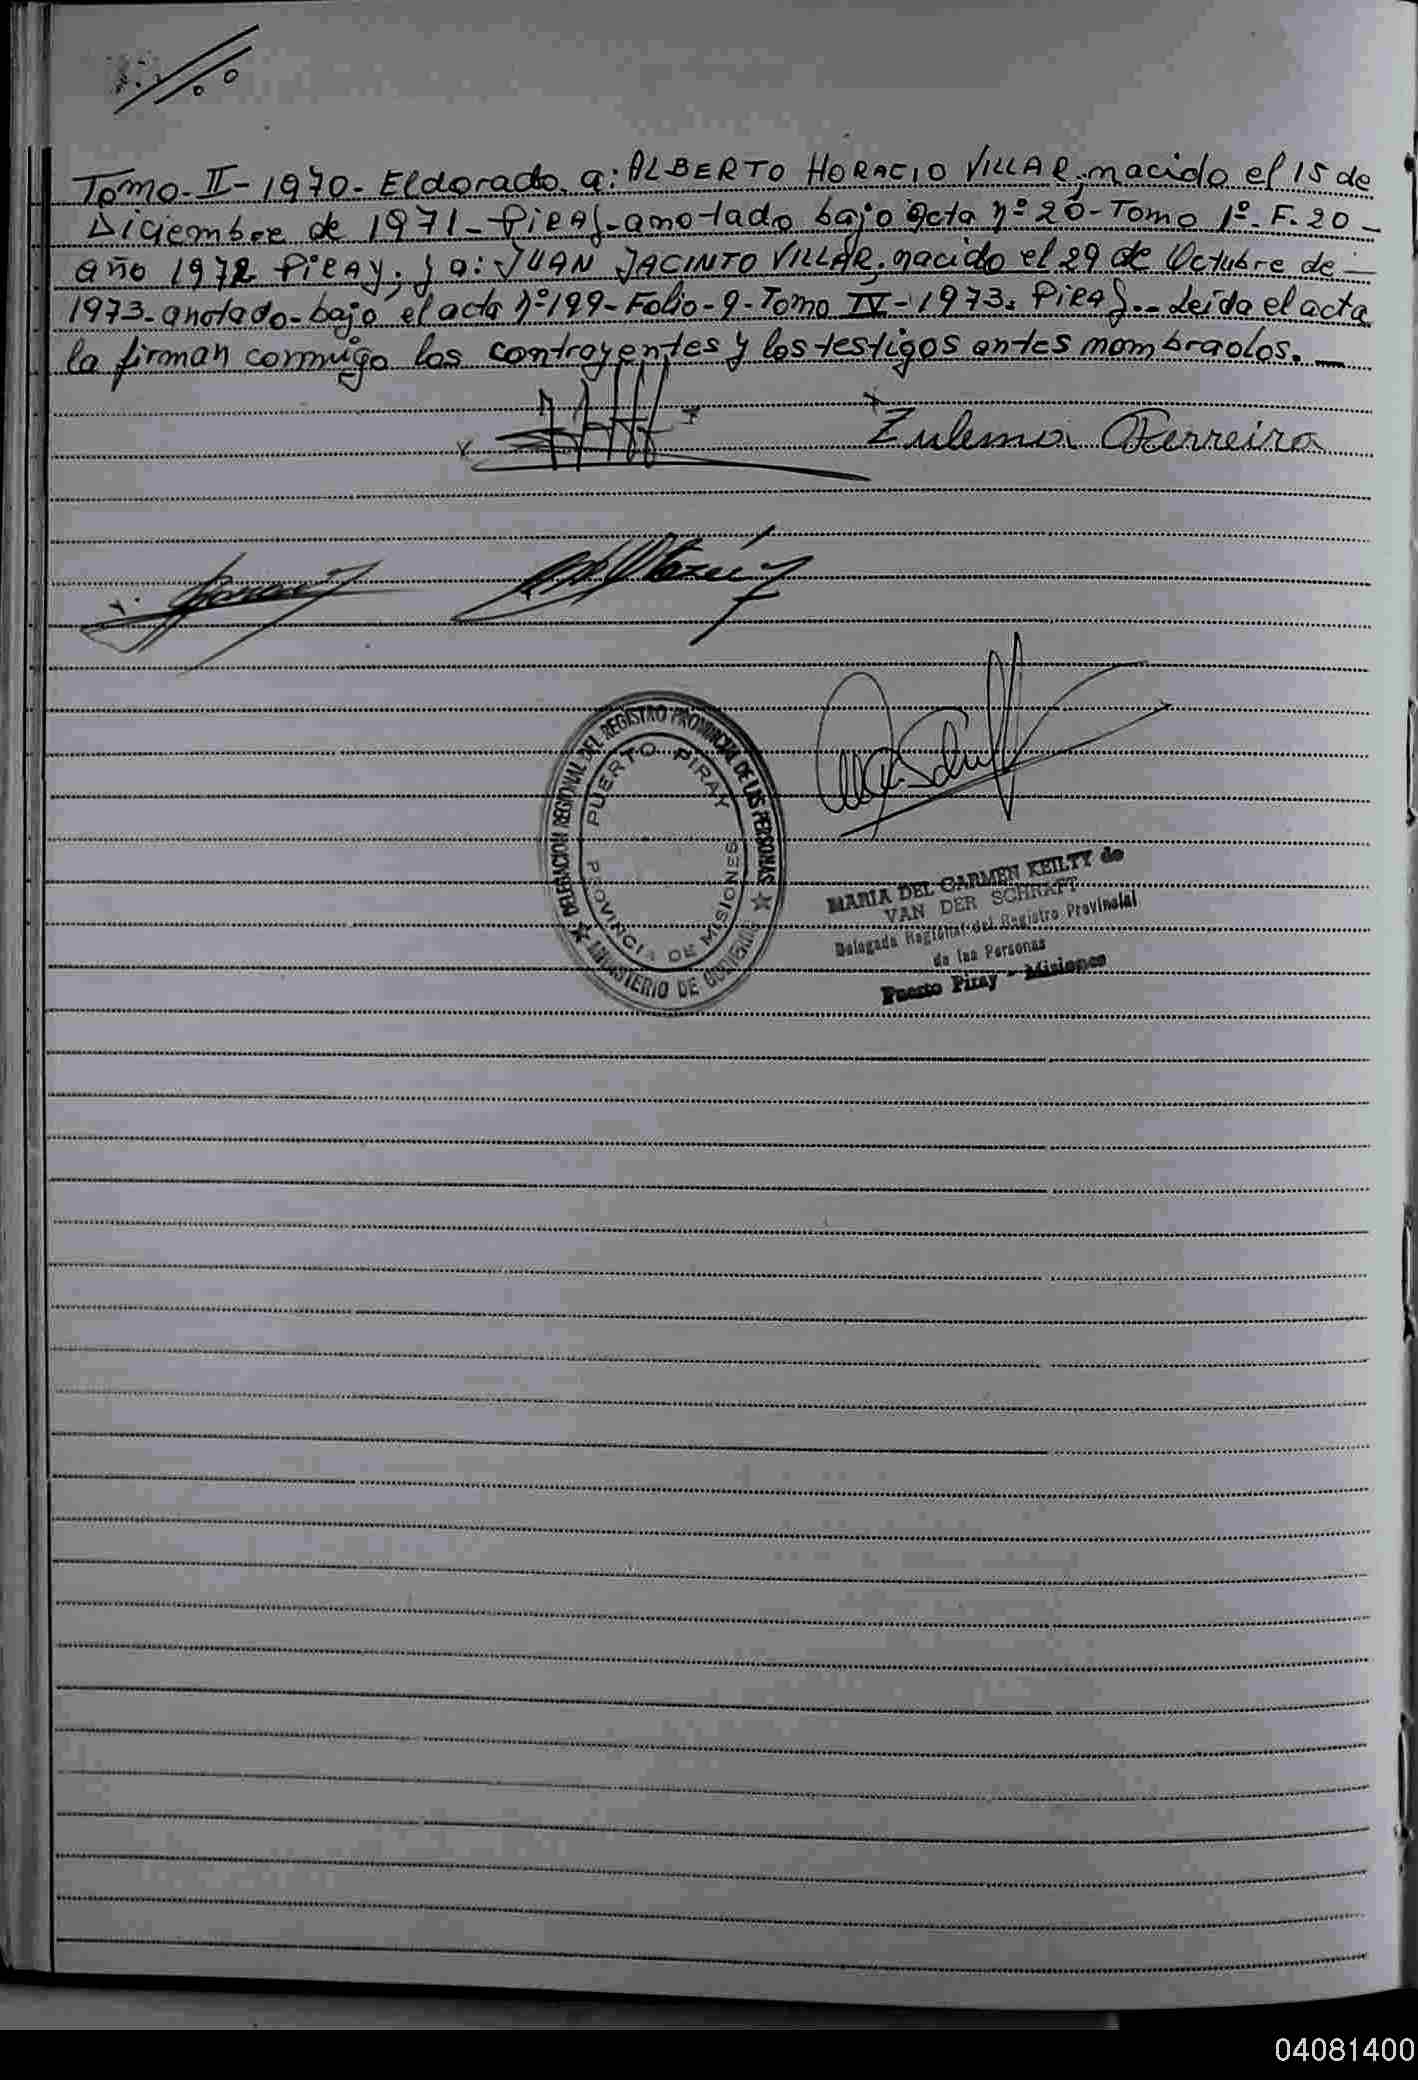 Tomo-II-1970-Eldorado. a: ALBERTO HORACIO VILLAR, nacido el 15 de
Diciembre de 1971-Piray-anotado bajo acta nº 20-Tomo 1º-F.20-
año 1972 Piray; y a: JUAN JACINTO VILLAR, nacido el 29 de Octubre de-
1973-anotado-bajo el acta nº199-Folio-9-Tomo IV-1973. Piray.-Leida el acta
la firman conmigo los contrayentes y los testigos antes nombrados.-
Zulema Ferreira
DELEGACION REGIONAL DEL REGISTRO PROVINCIAL DE LAS PERSONAS
PUERTO PIRAY
PROVINCIA DE MISIONES
MINISTERIO DE GOBIERNO
MARIA DEL CARMEN KEILTY de
VAN DER SCHRAFT
Delegada Regional del Registro Provincial
de las Personas
Puerto Piray - Misiones
04081400